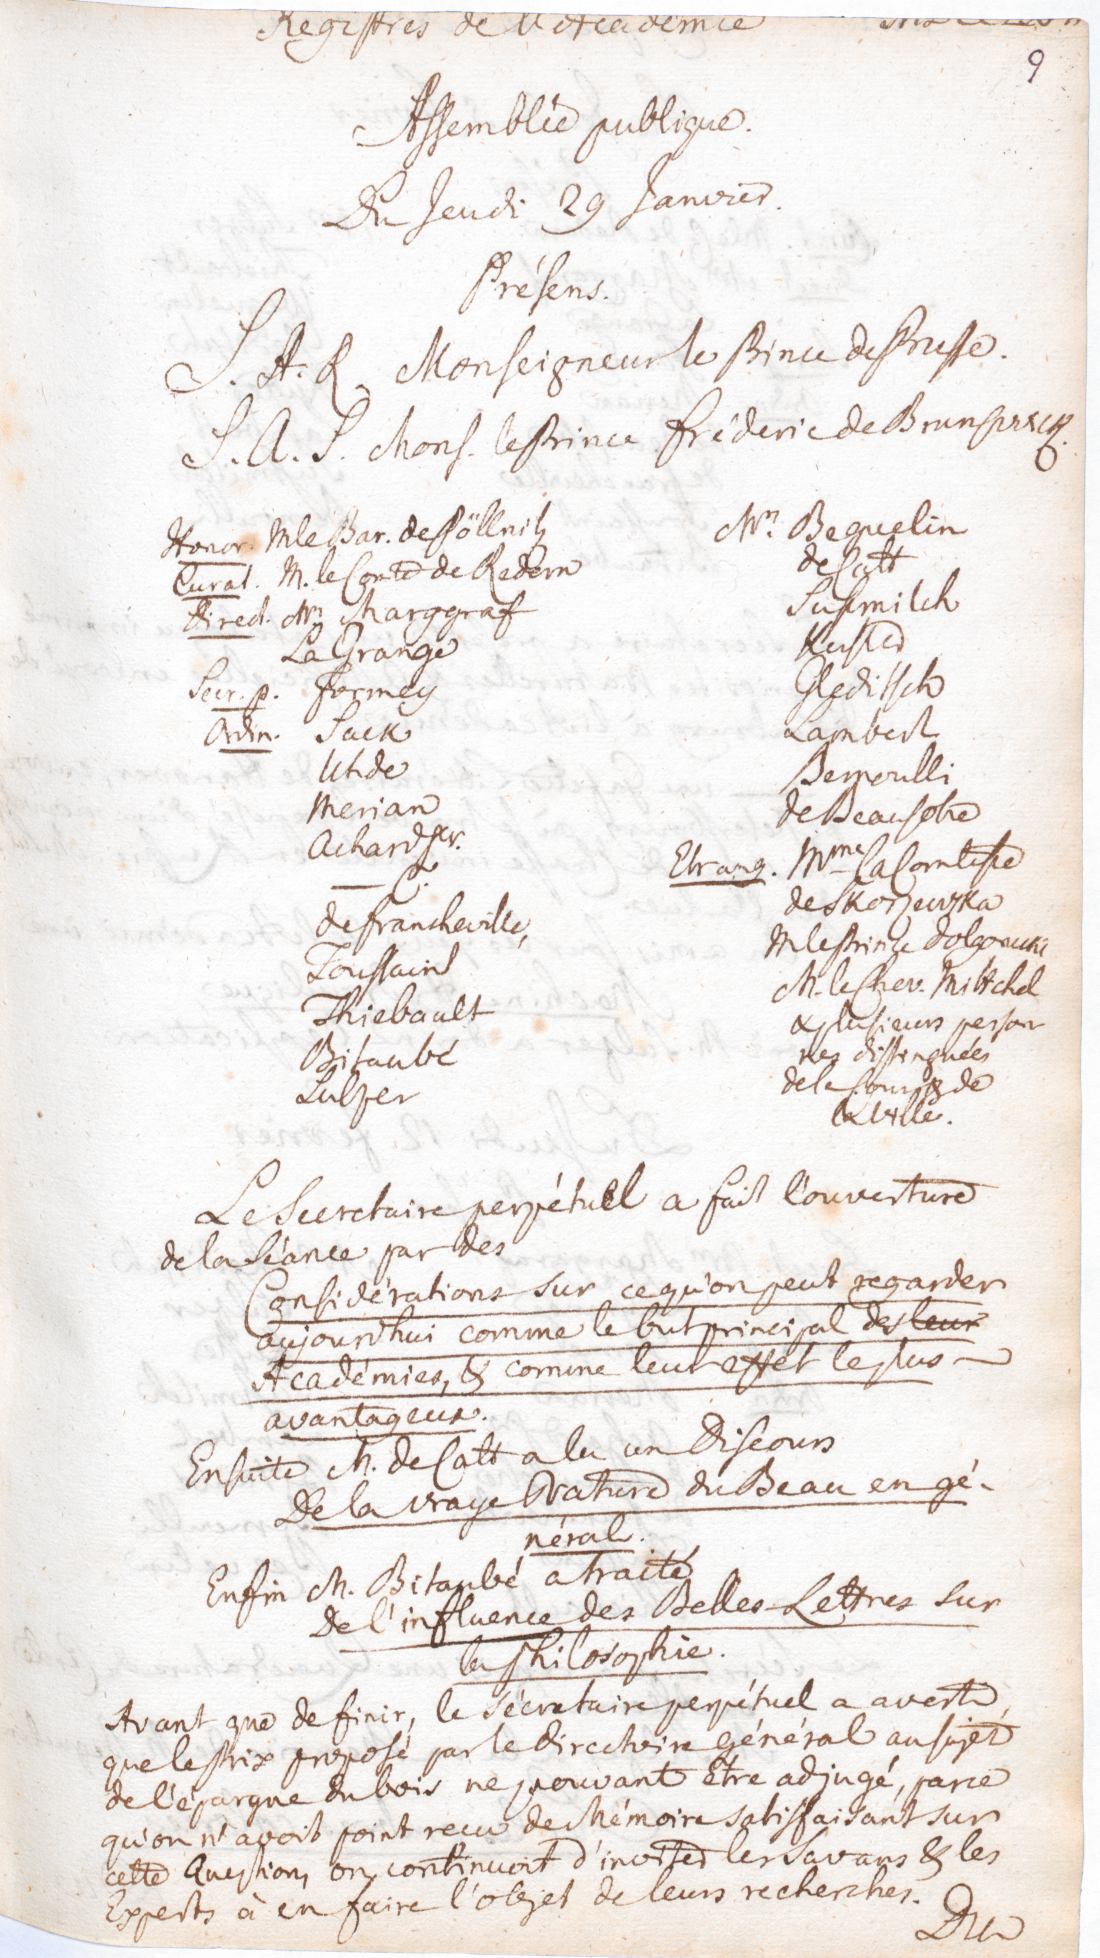 Registres de l'Academie
9
Assemblée publique.
Du Jeudi 29 Janvier.
Présens.
S. A. R. Monseigneur le Prince de Prusse.
S. A. S. Mons. le Prince fréderic de Brunswick.
Honor. M le Bar. de Pöllnitz
Curat. M. le Comte de Redern
Direct. Mrs Marggraf
La Grange
Secr. p. formey
Ordin. Sack
Uhde
Merian
Achard pr.
de francheville,
Toussaint
Thiebault
Bitaubé
Sulzer
Mrs. Beguelin
de Catt
Susmilch
Kuster
Gleditsch
Lambert
Bernoulli
de Beausobre
Etrang. Mme la Comtesse
de Skorzewska
M le Prince Dolgorucki
M. le Chev. Mittchel
& plusieurs person
nes distinguées
de la Cour & de
la ville.
Le Secretaire perpétuel a fait l'ouverture
de la Séance par des
Considérations sur ce qu'on peut regarder
aujourd'hui comme le but principal des leur
Académies, & comme leur effet le plus
avantageux.
Ensuite M. de Catt a lu un Discours
De la vraye Nature du Beau en gé-
néral.
Enfin M. Bitaubé a traité
De l'influence des Belles-Lettres sur
la Philosophie.
Avant que de finir, le Sécretaire perpétuel a averti
que le Prix proposé par le Directoire général au sujet
de l'épargne du bois ne pouvant être adjugé, parce
qu'on n'avoit point recu de Mémoire satisfaisant sur
cette Question, on continuoit d'inviter les Savans & les
Experts à en faire l'objet de leurs recherches.
Du